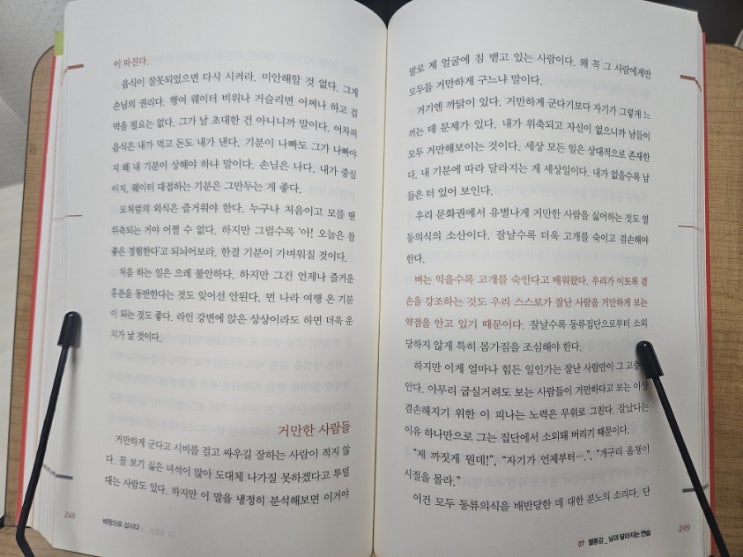 이 따진다.
음식이 잘못되었으면 다시 시켜라. 미안해할 것 없다. 그게
손님의 권리다. 행여 웨이터 비위나 거슬리면 어쩌나 하고 겁
먹을 필요는 없다. 그가 날 초대한 건 아니니까 말이다. 어차피
음식은 내가 먹고 돈도 내가 낸다. 기분이 나빠도 그가 나빠야
지 왜 내 기분이 상해야 하냐 말이다. 손님은 나다. 내가 중심
이지, 웨이터 대접하는 기분은 그만두는 게 좋다.
모처럼의 외식은 즐거워야 한다. 누구나 처음이고 모를 땐
위축되는 거야 어쩔 수 없다. 하지만 그럴수록 '아! 오늘은 참
좋은 경험한다'고 되뇌어보라. 한결 기분이 가벼워질 것이다.
처음 하는 일은 으레 불안하다. 하지만 그건 언제나 즐거운
흥분을 동반한다는 것도 잊어선 안된다. 먼 나라 여행 온 기분
이 되는 것도 좋다. 라인 강변에 앉은 상상이라도 하면 더욱 운
치가 날 것이다.
거만한 사람들
거만하게 군다고 시비를 걸고 싸우길 잘하는 사람이 적지 않
다. 꼴 보기 싫은 녀석이 많아 도대체 나가질 못하겠다고 투덜
대는 사람도 있다. 하지만 이 말을 냉정히 분석해보면 이거야
248
배짱으로 삽시다
말로 제 얼굴에 침 뱉고 있는 사람이다. 왜 꼭 그 사람에게만
모두들 거만하게 구느냐 말이다.
거기엔 까닭이 있다. 거만하게 군다기보다 자기가 그렇게 느
끼는 데 문제가 있다. 내가 위축되고 자신이 없으니까 남들이
모두 거만해보이는 것이다. 세상 모든 일은 상대적으로 존재한
다. 내 기분에 따라 달라지는 게 세상일이다. 내가 없을수록 남
들은 더 있어 보인다.
우리 문화권에서 유별나게 거만한 사람을 싫어하는 것도 열
등의식의 소산이다. 잘날수록 더욱 고개를 숙이고 겸손해야
한다.
벼는 익을수록 고개를 숙인다고 배워왔다. 우리가 이토록 겸
손을 강조하는 것도 우리 스스로가 잘난 사람을 거만하게 보는
약점을 안고 있기 때문이다. 잘날수록 동류집단으로부터 소외
당하지 않게 특히 몸가짐을 조심해야 한다.
하지만 이게 얼마나 힘든 일인가는 잘난 사람만이 그 고충을
안다. 아무리 굽실거려도 보는 사람들이 거만하다고 보는 이상
겸손해지기 위한 이 피나는 노력은 무위로 그친다. 잘났다는
이유 하나만으로 그는 집단에서 소외돼 버리기 때문이다.
"제 까짓게 뭔데!", "자기가 언제부터…", "개구리 올챙이
시절을 몰라."
이건 모두 동류의식을 배반당한 데 대한 분노의 소리다. 단
07 열등감_ 남과 달라지는 연습
249